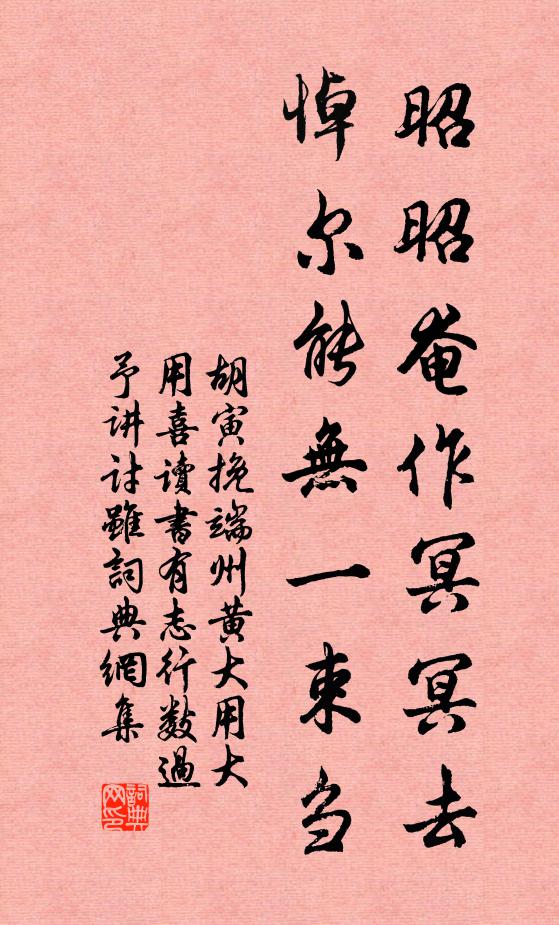 昭昭奄作冥冥去
悼尔能無一束刍
胡寅挽端州黄大用大
用喜讀書有志行数過
予讲讨雖詞典網集
詞典网印